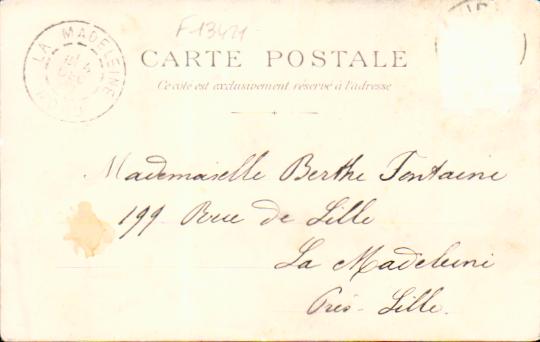 F-13421
LA MADELEINE
NORD
CARTE POSTALE
Ce coté est exclusivement réservé à l'adresse
Mademoiselle Berthe Fontaine
199 Rue de Lille
La Madeleine
Près-Lille.